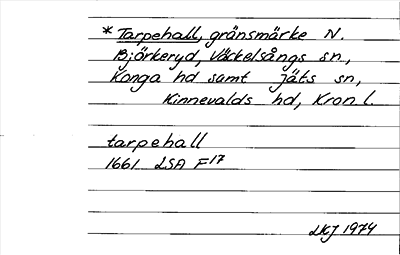 * Tarpehall, gränsmärke N.
Björkeryd, Väckelsångs sn,
Konga hd samt Jäts sn,
Kinnevalds hd, Kron. l.
tarpehall
1661 LSA F17
LKJ 1974